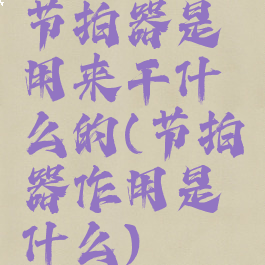 节拍器是
用来干什
么的(节拍
器作用是
什么)